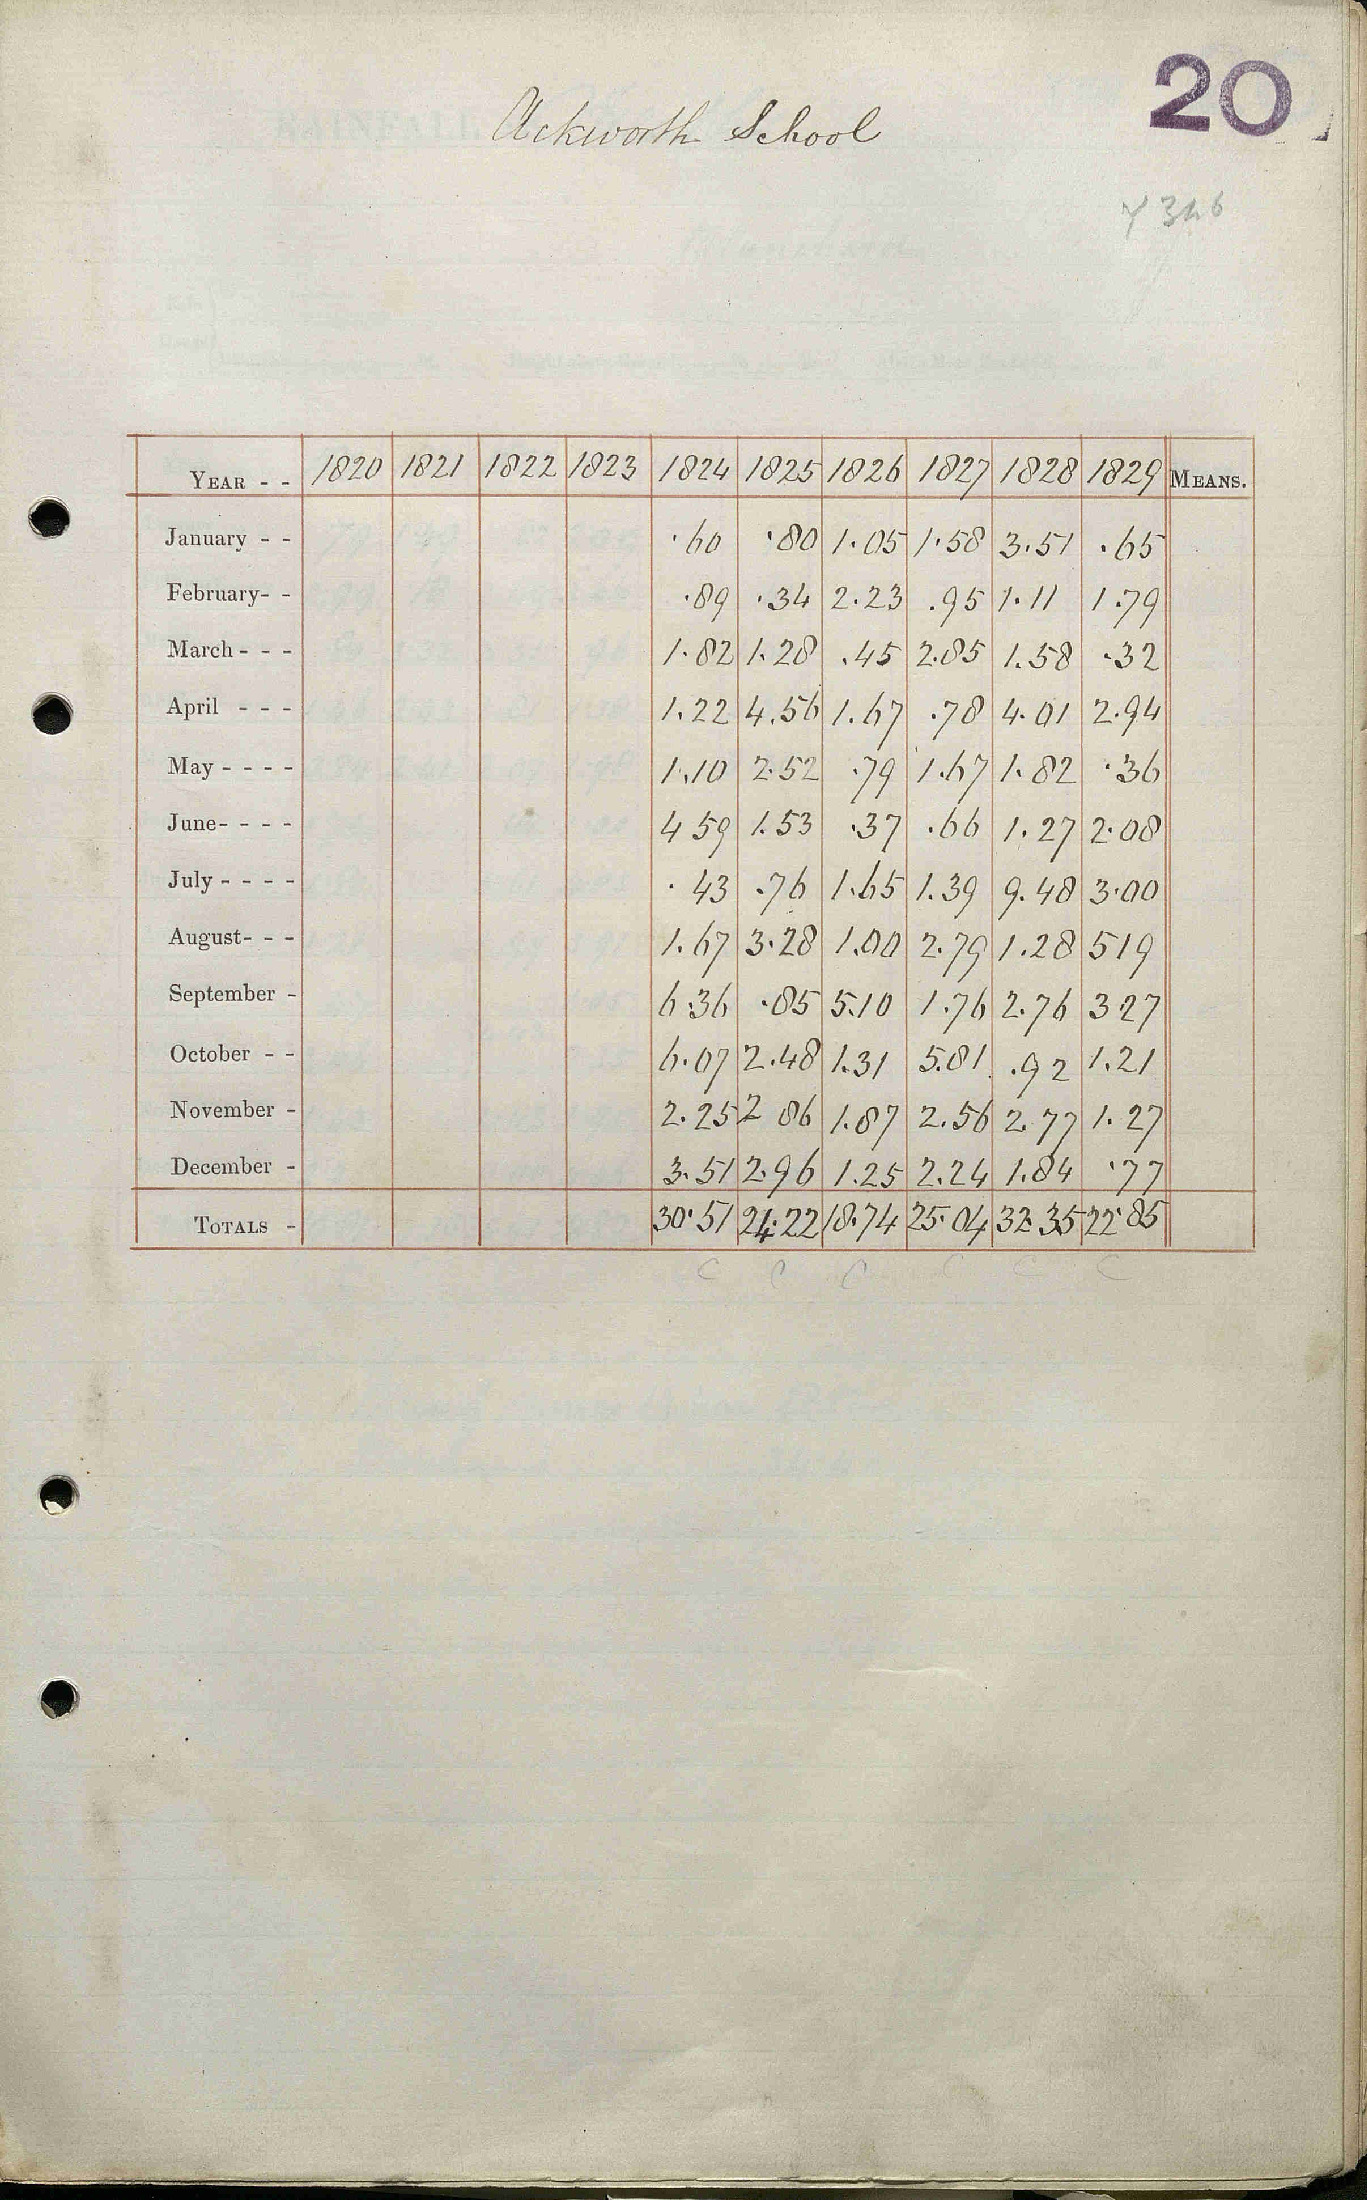 20
Ackworth School
Y 326
YEAR - - 1820 1821 1822 1823 1824 1825 1826 1827 1828 1829 MEANS.
January - - ·60 ·80 1.05 1.58 3.51 .65
February- - ·89 ·34 2.23 .95 1.11 1.79
March - - - 1.82 1.28 .45 2.85 1.58 ·32
April - - - 1.22 4.56 1.67 ·78 4.01 2.94
May - - - - 1.10 2.52 ·79 1.67 1.82 ·36
June- - - - 4 59 1.53 ·37 ·66 1.27 2.08
July - - - - ·43 ·76 1.65 1.39 9.48 3·00
August- - - 1.67 3.28 1.00 2.79 1.28 5 19
September - 6·36 ·85 5.10 1.76 2.76 3 27
October - - 6.07 2.48 1.31 5.81 .92 1.21
November - 2.25 2 86 1.87 2.56 2.77 1.27
December - 3.51 2.96 1.25 2.24 1.84 ·77
TOTALS - 30·51 24·22 18·74 25·04 32·35 22·85
C C C C C C